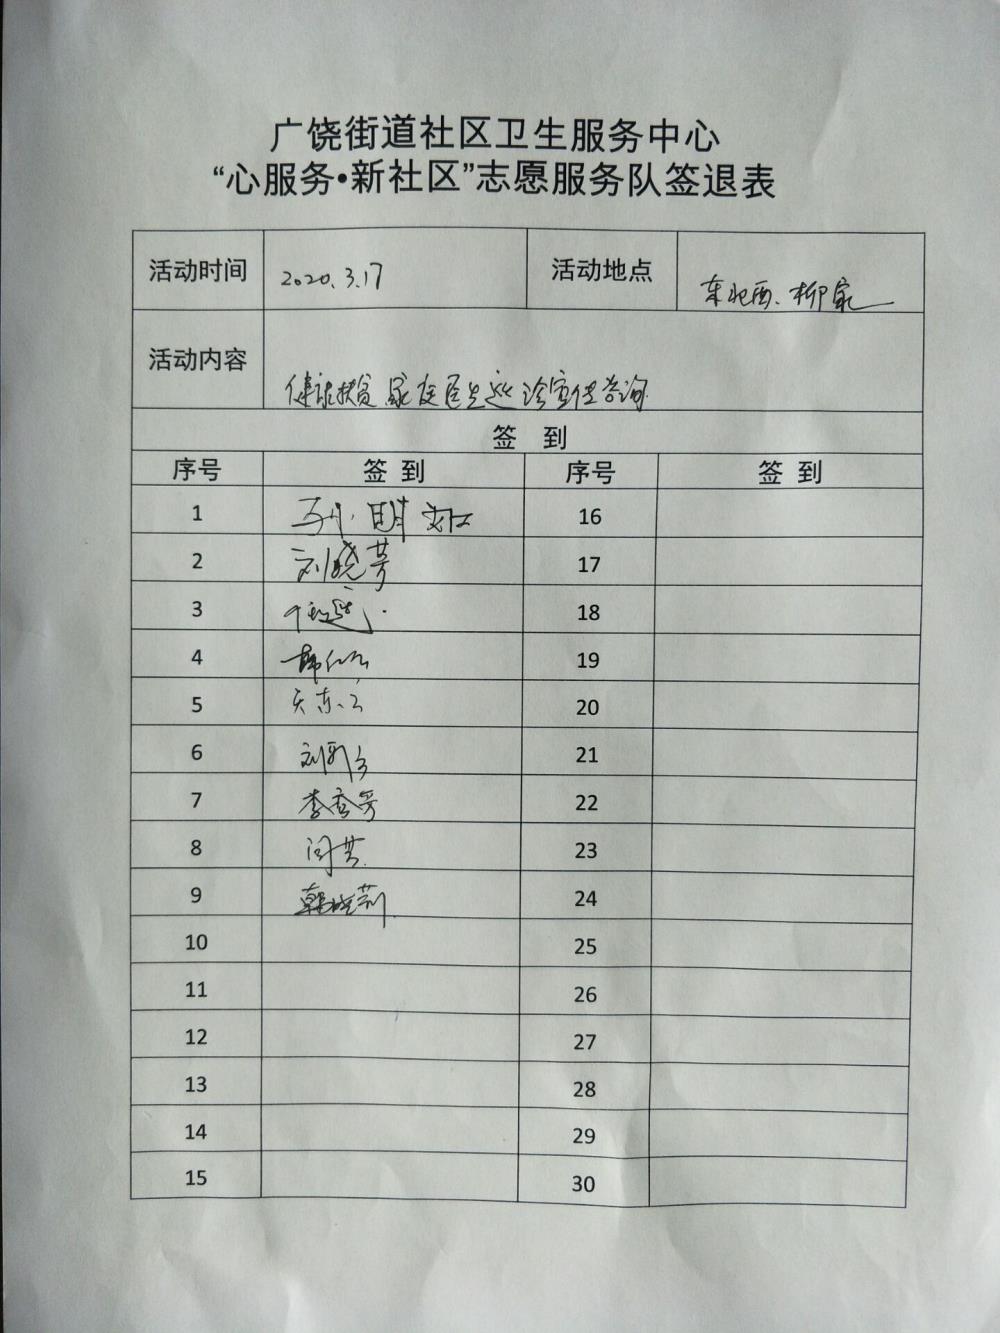 广饶街道社区卫生服务中心
“心服务•新社区”志愿服务队签退表
活动时间 2020.3.17 活动地点 东北西、柳家
活动内容 健康扶贫 家庭医生巡诊宣传咨询
签 到
序号 签 到 序号 签 到
1 16
2 刘晓芳 17
3 18
4 19
5 20
6 刘 21
7 李秀芳 22
8 闫芸 23
9 韩晓莉 24
10 25
11 26
12 27
13 28
14 29
15 30